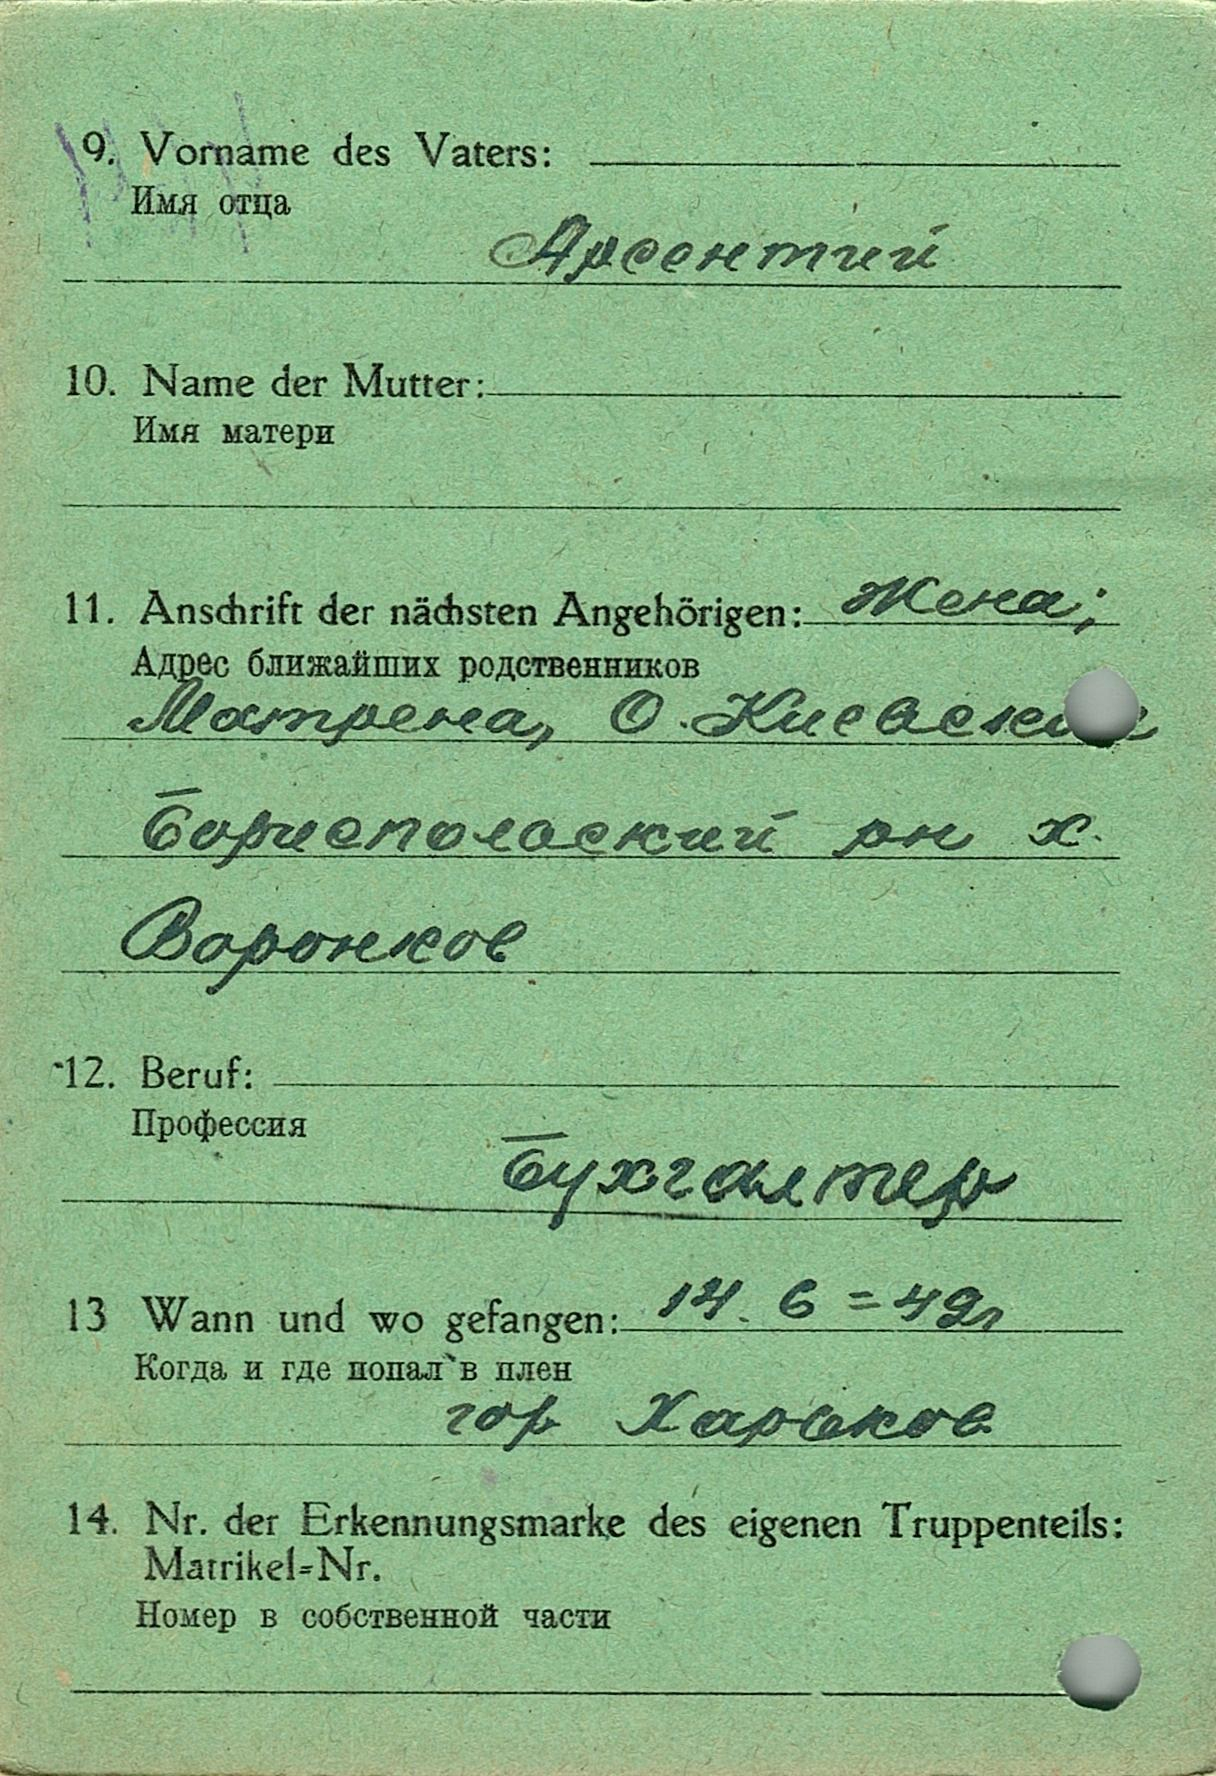 9. Vorname des Vaters:
Имя отца
Арсентий
10. Name der Mutter:
Имя матери
11. Anschrift der nächsten Angehörigen: Жена;
Адрес ближайших родственников
Матрена, О. Киевская
Бориспольский рн х.
Воронков
12. Beruf:
Профессия
Бухгалтер
13 Wann und wo gefangen: 14. 6 = 42г
Когда и где попал в плен
гор Харьков
14. Nr. der Erkennungsmarke des eigenen Truppenteils:
Matrikel=Nr.
Номер в собственной части